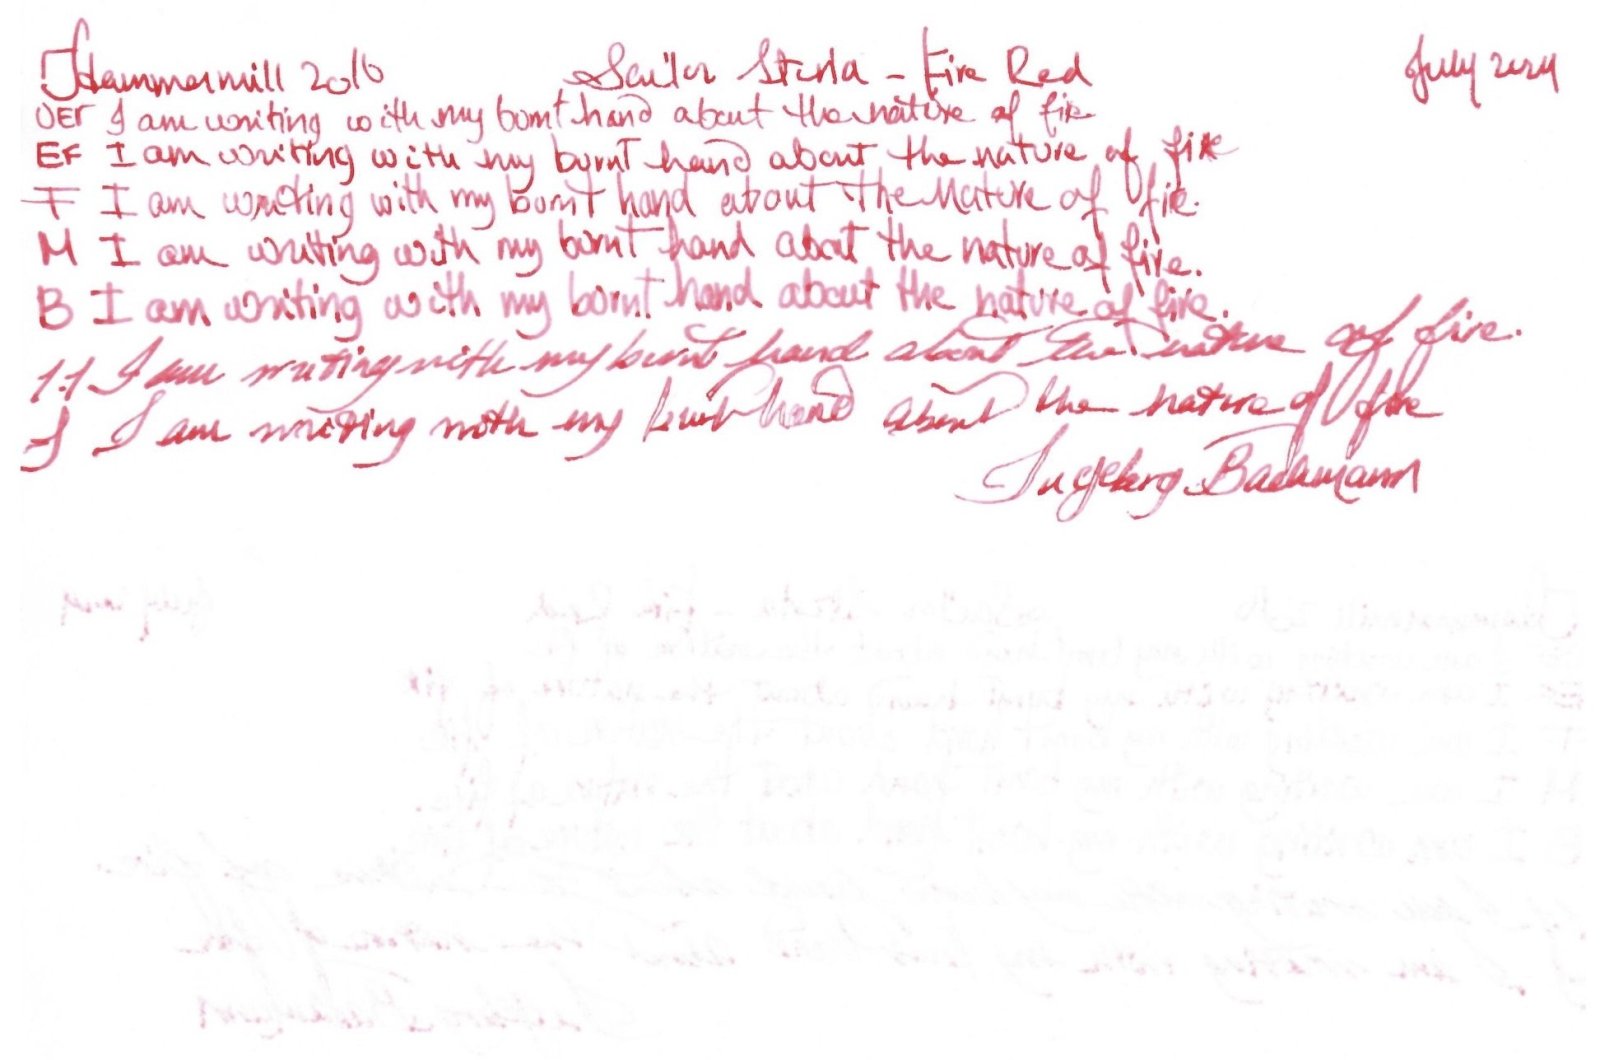 Hammermill 20lb Sailor Studio - Fire Red July 2024
UEF I am writing with my burnt hand about the nature of fire
EF I am writing with my burnt hand about the nature of fire
F I am writing with my burnt hand about the Nature of fire.
M I am writing with my burnt hand about the nature of fire.
B I am writing with my burnt hand about the nature of fire.
1.1 I am writing with my burnt hand about the nature of fire.
J I am writing with my burnt hand about the nature of fire
Ingeborg Bachmann